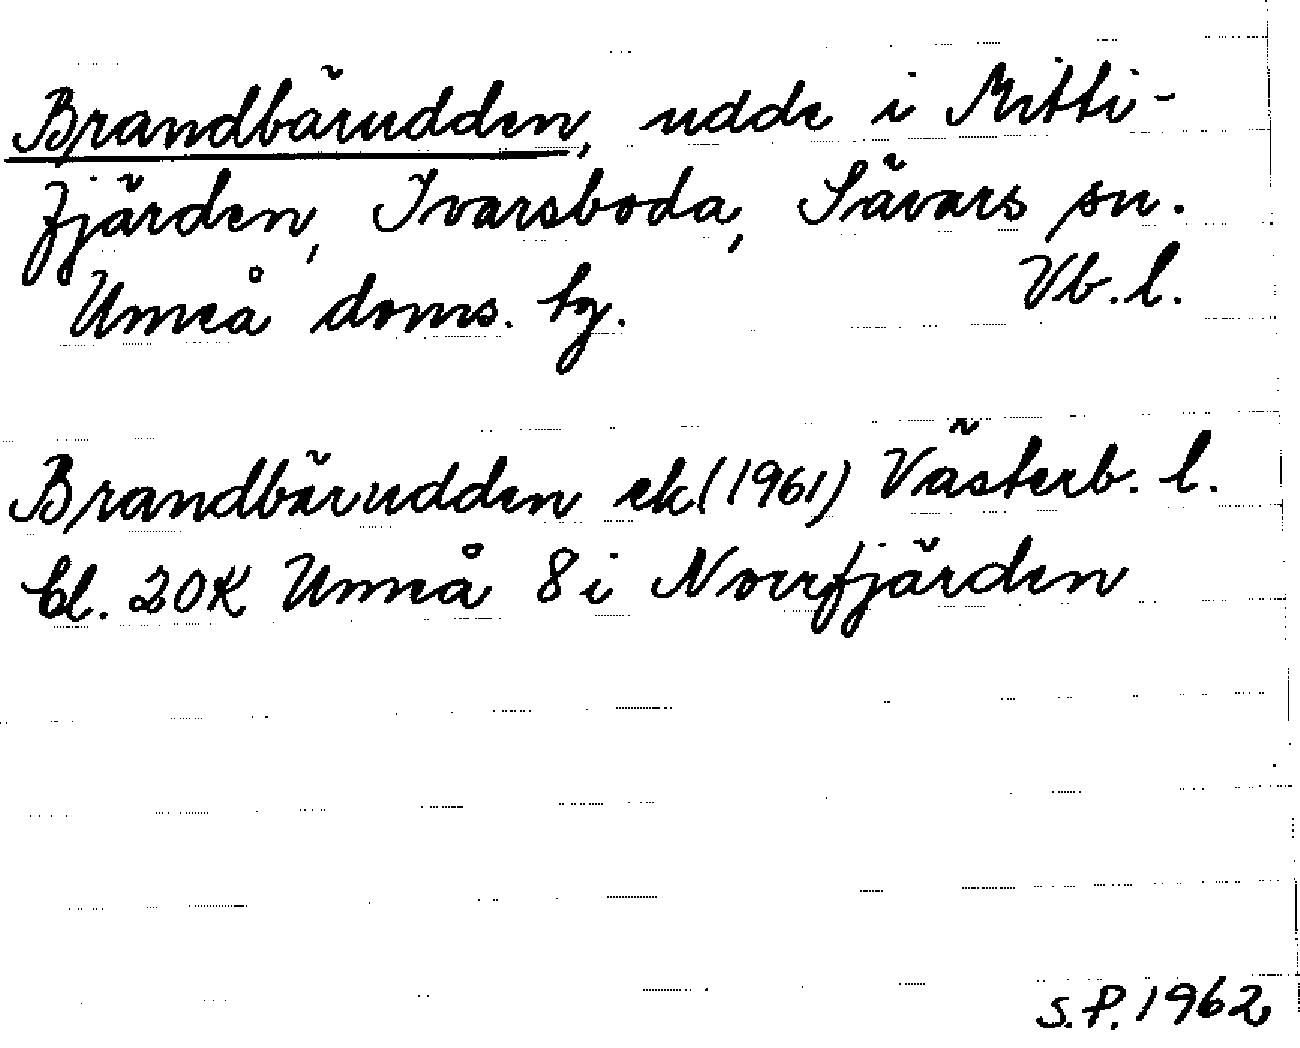 Brandbärudden, udde i Mitti-
fjärden, Ivarsboda, Sävars sn.
Umeå doms. tg. Vb. l.
Brandbärudden ek (1961) Västerb. l.
bl. 20K Umeå 8 i Norrfjärden
S.P. 1962